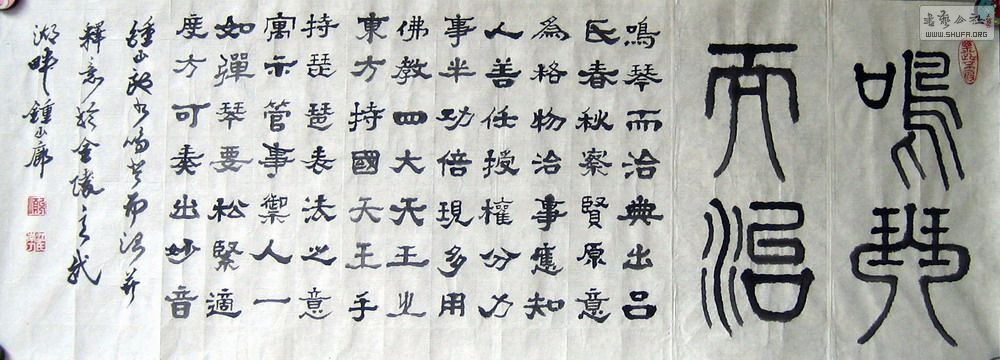 鳴琴
而治
鳴琴而治典出吕
氏春秋察賢原意
為格物治事應知
人善任授權分力
事半功倍現多用
佛教四大天王之
東方持國天王手
持琵琶表法之意
寓示管事禦人一
如彈琴要松緊適
度方可奏出妙音
鍾山书鳴琴而治并
釋意於金陵玄武
湖畔鍾山廊
书艺公社
WWW.SHUFA.ORG